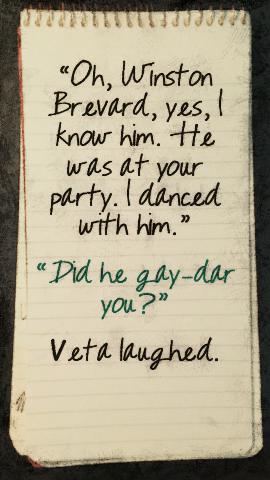 “Oh, Winston
Brevard, yes, I
know him. He
was at your
party. I danced
with him.”
“Did he gay-dar
you?”
Veta laughed.